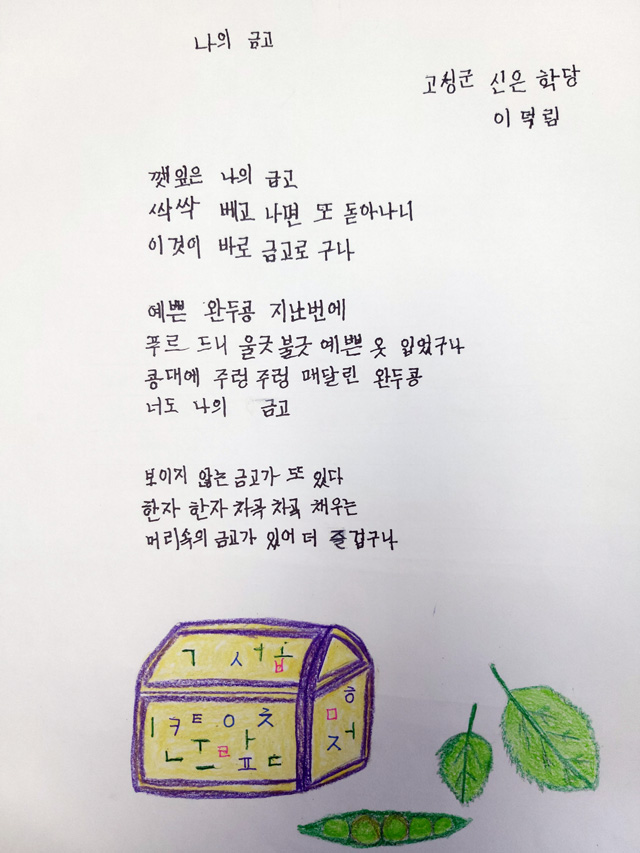 나의 금고
고성군 신은 학당
이덕림
깻잎은 나의 금고
싹싹 베고 나면 또 돋아나니
이것이 바로 금고로 구나
예쁜 완두콩 지난번에
푸르 드니 울긋불긋 예쁜 옷 입었구나
콩대에 주렁주렁 매달린 완두콩
너도 나의 금고
보이지 않는 금고가 또 있다
한자 한자 차곡 차곡 채우는
머리속의 금고가 있어 더 즐겁구나
ㄱ ㅅ ㅓ ㅂ
ㅣ ㅋ ㅌ ㅇ ㅊ
ㄴ ㅜ ㅡ ㄹ ㅏ ㅍ ㄷ
ㅎ
ㅁ
ㅈ ㅓ